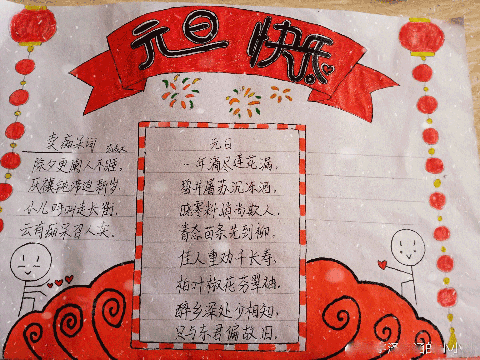 元旦快乐
卖痴呆词
除夕更阑人不睡,
厌禳钝滞迎新岁,
小儿呼叫走长街,
云有痴呆召人卖。
元日
一年滴尽莲花漏,
碧井屠苏沉冻酒,
晓寒料峭尚欺人,
春态苗条先到柳。
佳人重劝千长寿,
柏叶椒花芬翠袖,
醉乡深处少相知,
只与东君偏故旧。